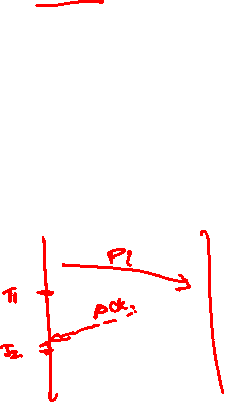 P1
T1
ACK
T2